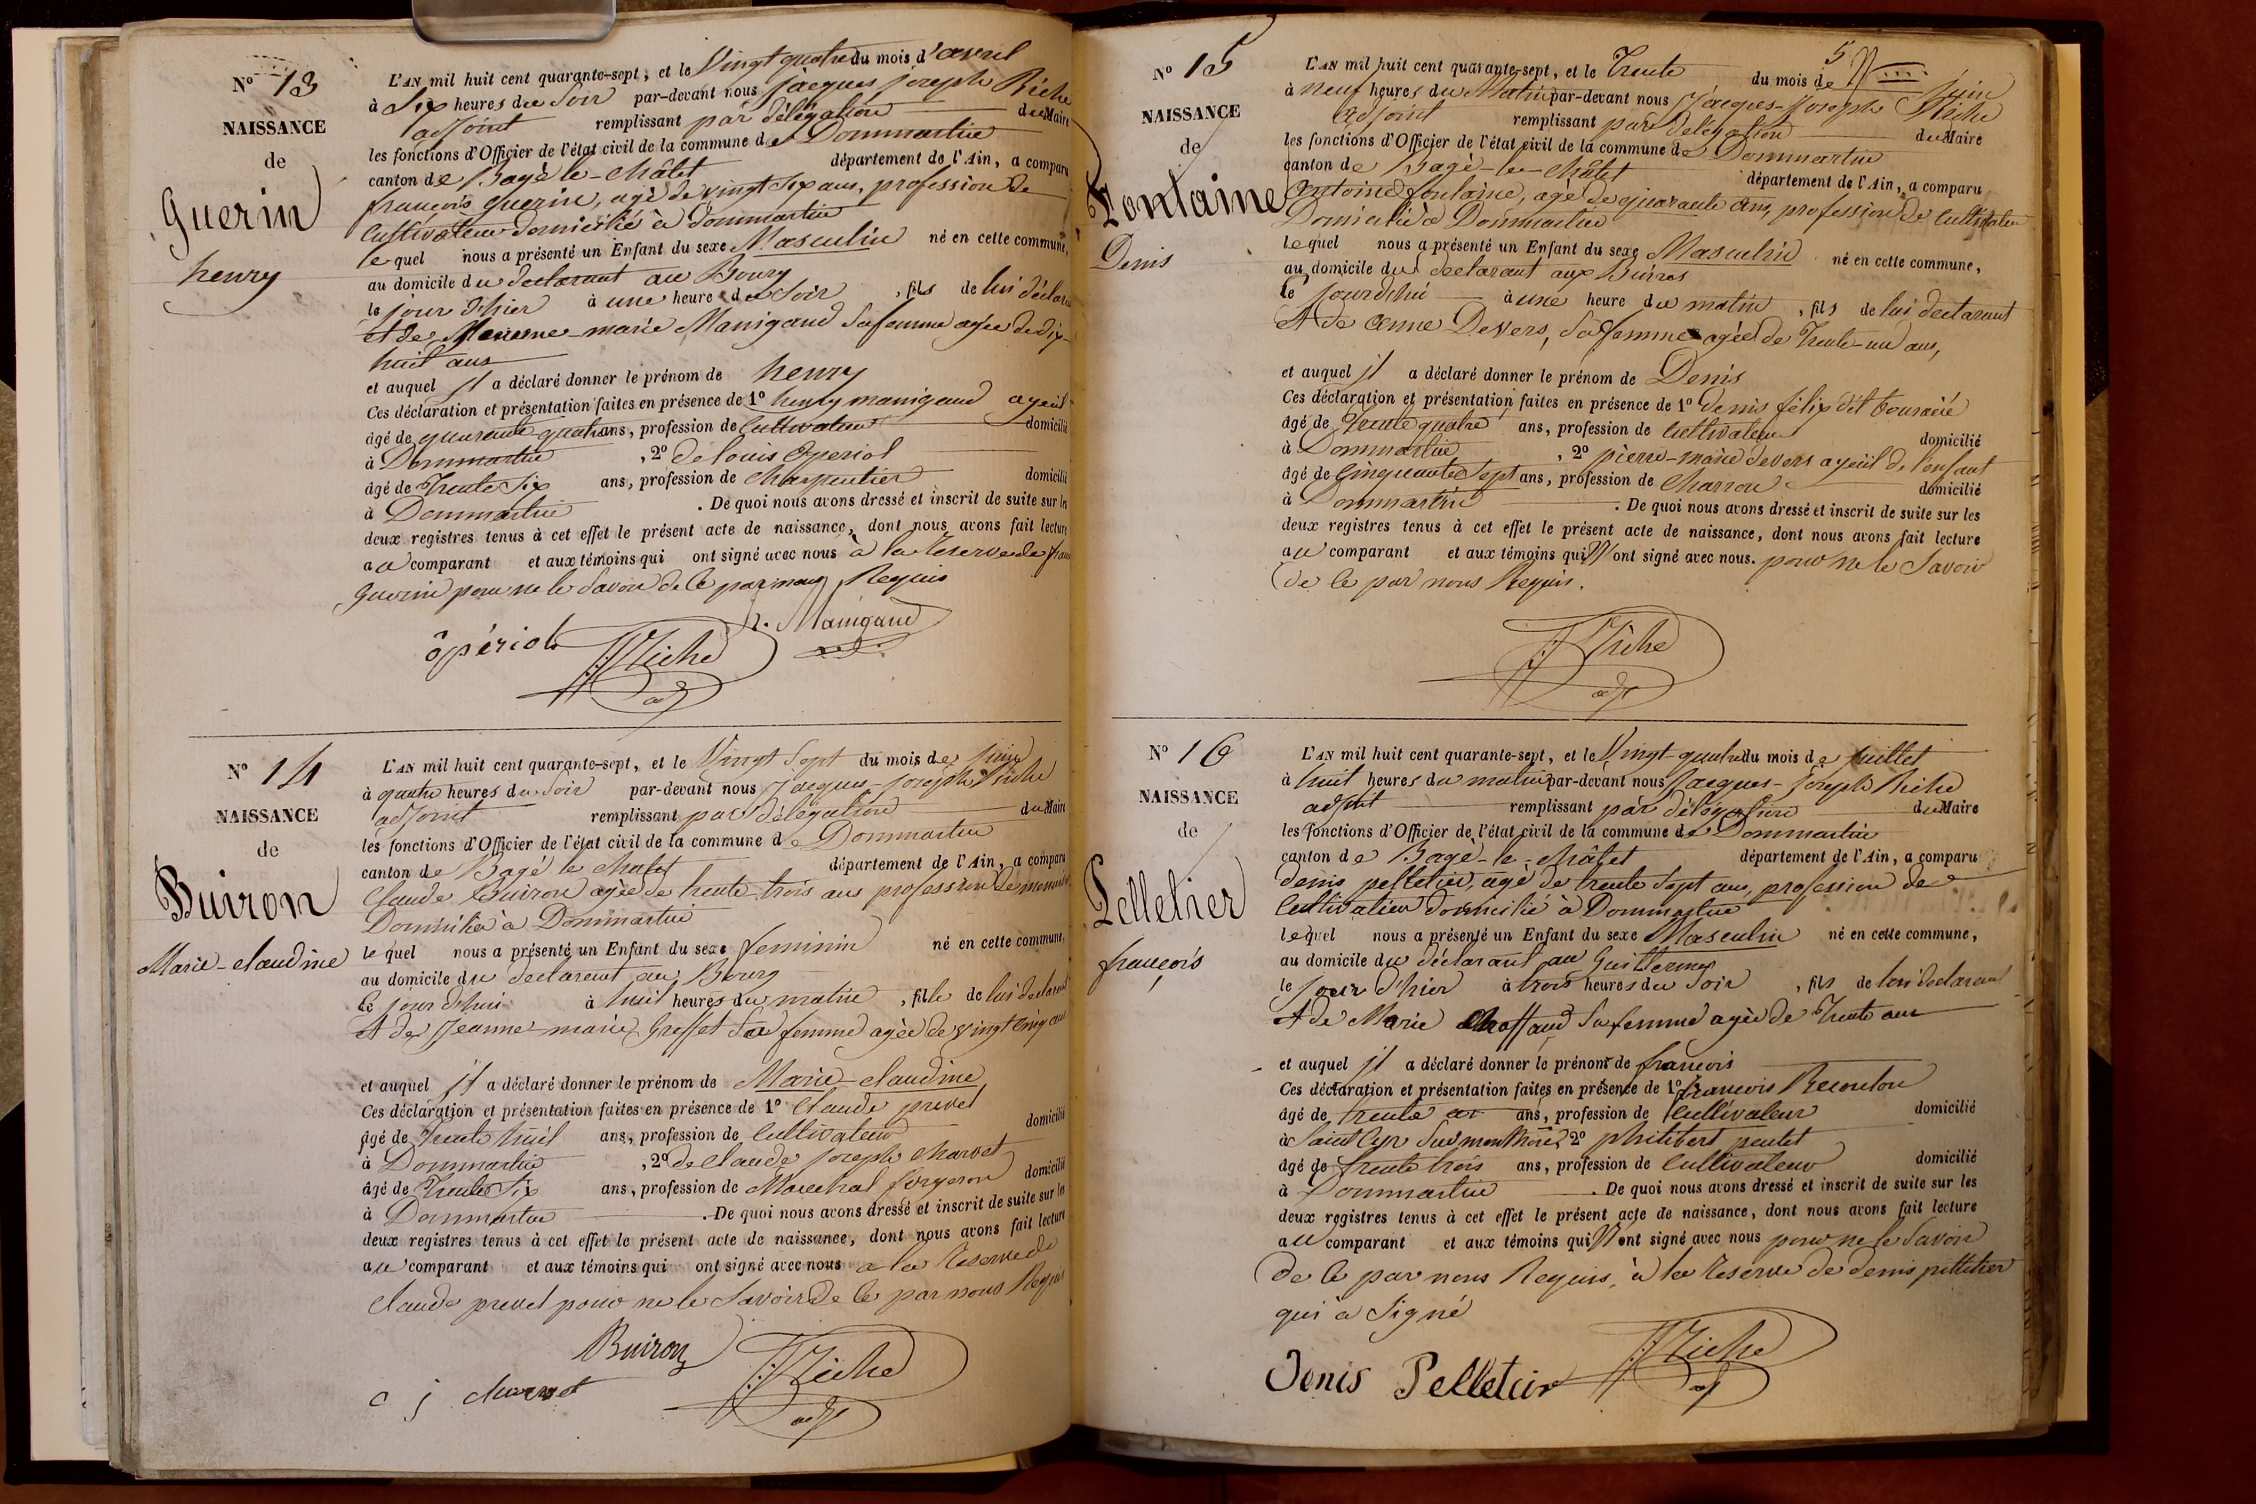 N° 13
NAISSANCE
de
Guerin
henry
L'AN mil huit cent quarante-sept, et le Vingt quatre du mois d'avril
à Six heures du Soir par-devant nous jacques joseph Riche
adjoint remplissant par délégation du Maire
les fonctions d'Officier de l'état civil de la commune de Dommartin
canton de Bagé-le-châtel département de l'Ain, a comparu
françois guerin, agé de vingt six ans, profession de
Cultivateur domicilié à dommartin
lequel nous a présenté un Enfant du sexe Masculin né en cette commune,
au domicile du declarant au Bourg
le jour d'hier à une heure du Soir, fils de lui déclara
et de marie Manigand Sa femme agée de dix-
huit ans
et auquel il a déclaré donner le prénom de henry
Ces déclaration et présentation faites en présence de 1° henry manigand ayeul
âgé de quarante quatre ans, profession de Cultivateur domicilié
à Dommartin, 2° de louis Operiol
âgé de Trente Six ans, profession de Charpentier domicilié
à Dommartin. De quoi nous avons dressé et inscrit de suite sur les
deux registres tenus à cet effet le présent acte de naissance, dont nous avons fait lecture
au comparant et aux témoins qui ont signé avec nous à la reserve de fran
Guerin pour ne le Savoir de Ce par nous Requis
h. Manigand
ôpériol
JJ Riche
adj
N° 14
NAISSANCE
de
Buiron
Marie-claudine
L'AN mil huit cent quarante-sept, et le Vingt Sept du mois de juin
à quatre heures du Soir par-devant nous Jacques-joseph Riche
adjoint remplissant par délégation du Maire
les fonctions d'Officier de l'état civil de la commune de Dommartin
canton de Bagé le chatel département de l'Ain, a comparu
Claude Buiron agée de trente-trois ans profession de
Domicilié à Dommartin
lequel nous a présenté un Enfant du sexe feminin né en cette commune,
au domicile du declarant au Bourg
Ce jour d'hui à huit heures du matin, fille de lui declarant
et de Jeanne-marie Greffet Sa femme agée de vingt cinq ans
et auquel il a déclaré donner le prénom de Marie-claudine
Ces déclaration et présentation faites en présence de 1° Claude prevel
âgé de Trente huit ans, profession de Cultivateur domicilié
à Dommartin, 2° de Claude joseph Charvet
âgé de Trente Six ans, profession de Marechal forgeron domicilié
à Dommartin. De quoi nous avons dressé et inscrit de suite sur les
deux registres tenus à cet effet le présent acte de naissance, dont nous avons fait lecture
au comparant et aux témoins qui ont signé avec nous a la Reserve de
Claude prevel pour ne le Savoir de Ce par nous Requis
Buiron
JJ Riche
adj
c j charvet
5
N° 15
NAISSANCE
de
Fontaine
Denis
L'AN mil huit cent quarante-sept, et le Trente du mois de juin
à Neuf heures du Matin par-devant nous Jacques-joseph Riche
adjoint remplissant par délégation du Maire
les fonctions d'Officier de l'état civil de la commune de Dommartin
canton de Bagé-le-châtel département de l'Ain, a comparu
Antoine fontaine, agé de quarante ans, profession de Cultivateur
Domicilié à Dommartin
lequel nous a présenté un Enfant du sexe Masculin né en cette commune,
au domicile du declarant aux Buires
le jourd'hui à une heure du matin, fils de lui declarant
et de Anne Devers, Sa femme agée de Trente-un ans,
et auquel il a déclaré donner le prénom de Denis
Ces déclaration et présentation faites en présence de 1° denis félix
âgé de Trente quatre ans, profession de Cultivateur domicilié
à Dommartin, 2° pierre-marie devers ayeul de l'enfant
âgé de Cinquante Sept ans, profession de Charron domicilié
à Dommartin. De quoi nous avons dressé et inscrit de suite sur les
deux registres tenus à cet effet le présent acte de naissance, dont nous avons fait lecture
au comparant et aux témoins qui N'ont signé avec nous. pour ne le Savoir
de Ce par nous Requis.
JJ Riche
adj
N° 16
NAISSANCE
de
Pelletier
françois
L'AN mil huit cent quarante-sept, et le Vingt-quatre du mois de juillet
à huit heures du matin par-devant nous Jacques-joseph Riche
adjoint remplissant par délégation du Maire
les fonctions d'Officier de l'état civil de la commune de Dommartin
canton de Bagé-le-châtel département de l'Ain, a comparu
denis pelletier, agé de trente Sept ans, profession de
Cultivateur domicilié à Dommartin
lequel nous a présenté un Enfant du sexe Masculin né en cette commune,
au domicile du déclarant au
le jour d'hier à trois heures du Soir, fils de lui declarant
et de Marie Sa femme agée de Trente ans
et auquel il a déclaré donner le prénom de francois
Ces déclaration et présentation faites en présence de 1° francois
âgé de trente ans, profession de Cultivateur domicilié
à Saint Cyr Sur menthon, 2° philibert peulet
âgé de trente trois ans, profession de Cultivateur domicilié
à Dommartin. De quoi nous avons dressé et inscrit de suite sur les
deux registres tenus à cet effet le présent acte de naissance, dont nous avons fait lecture
au comparant et aux témoins qui N'ont signé avec nous pour ne le Savoir
de Ce par nous Requis, à la reserve de denis pelletier
qui à Signé
JJ Riche
adj
Denis Pelletier